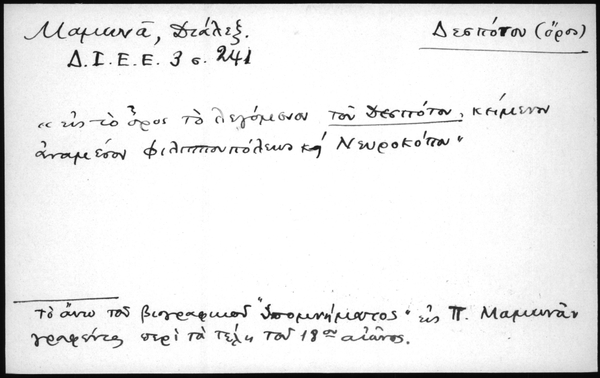 Μαμωνᾶ, Διάλεξ.
Δεσπότου (ὄρος)
Δ.Ι.Ε.Ε. 3 σ. 241
"εἰς τὸ ὄρος τὸ λεγόμενον τοῦ Δεσπότου, κείμενον
ἀναμεσόν Φιλιππουπόλεως καί Νευροκόπου"
Τὸ ἄνω τοῦ βιογραφικοῦ "Ὑπομνήματος" εἰς Π. Μαμωνᾶν
γραφέντος περὶ τὰ τέλη τοῦ 18ου αἰῶνος.